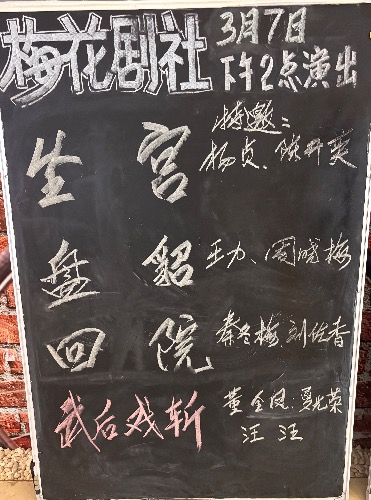 梅花剧社 3月7日
下午2点演出
特邀:
生宫 杨贞、陈升英
盘貂 王力、周晓梅
回院 秦冬梅、刘佐香
武后戏斩 董金凤、夏光荣
汪汪